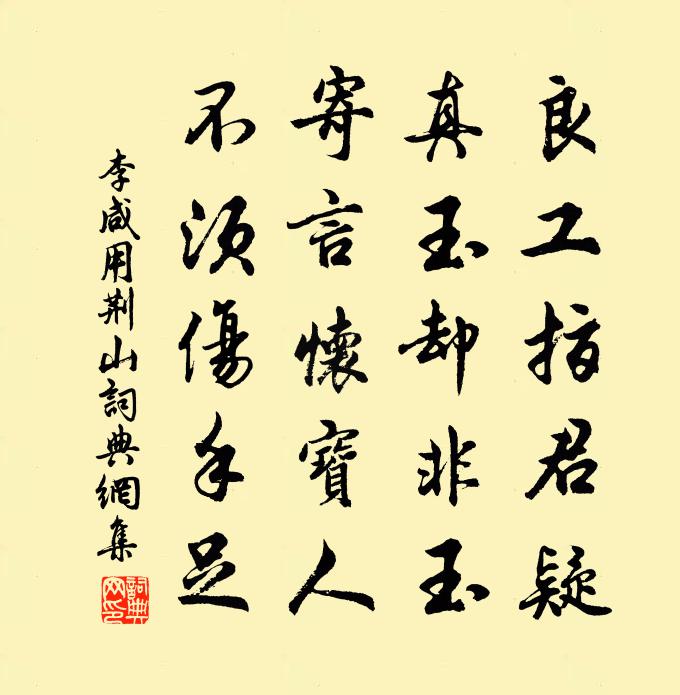 良工指君疑
真玉却非玉
寄言懷寶人
不須傷手足
李咸用荆山詞典網集
詞典網印